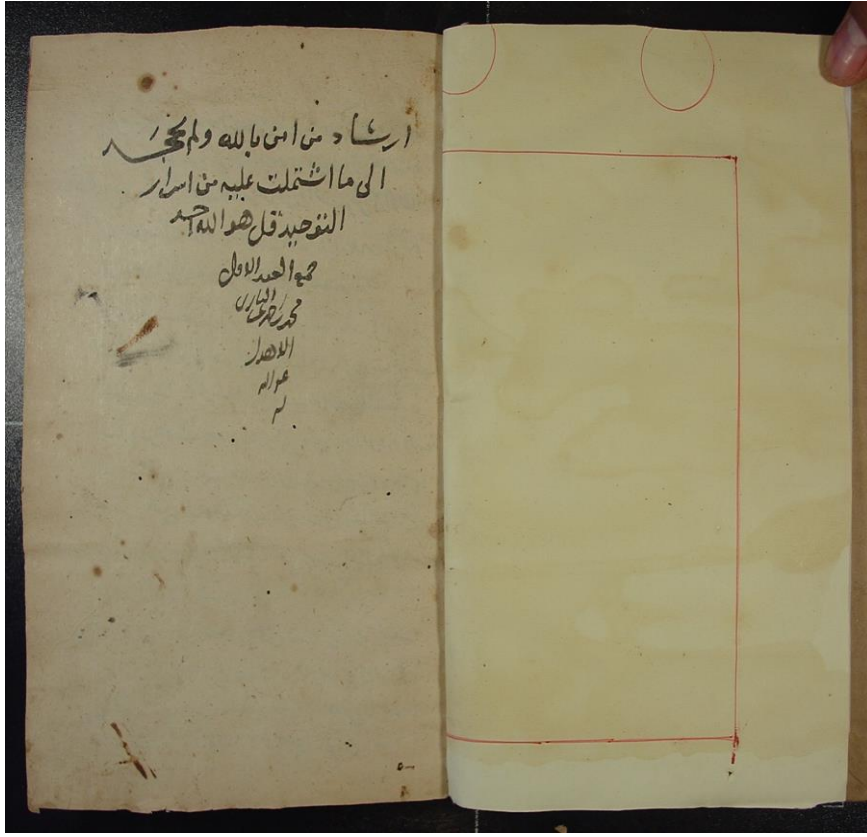 ارشاد من امن بالله ولم يجحد
الى ما اشتملت عليه من اسرار
التوحيد قل هو الله احد
جمع العبد الاقل
محمد بن احمد عبد الباري
الاهدل
عفا الله